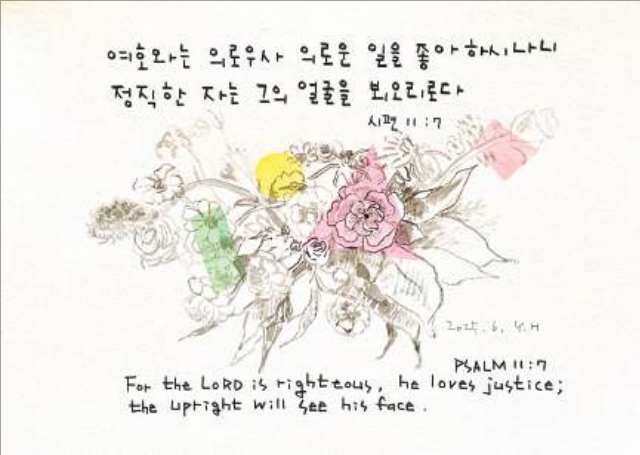 여호와는 의로우사 의로운 일을 좋아하시나니
정직한 자는 그의 얼굴을 뵈오리로다
시편 11:7
2025. 6. Y.H
PSALM 11:7
For the LORD is righteous, he loves justice;
the upright will see his face.